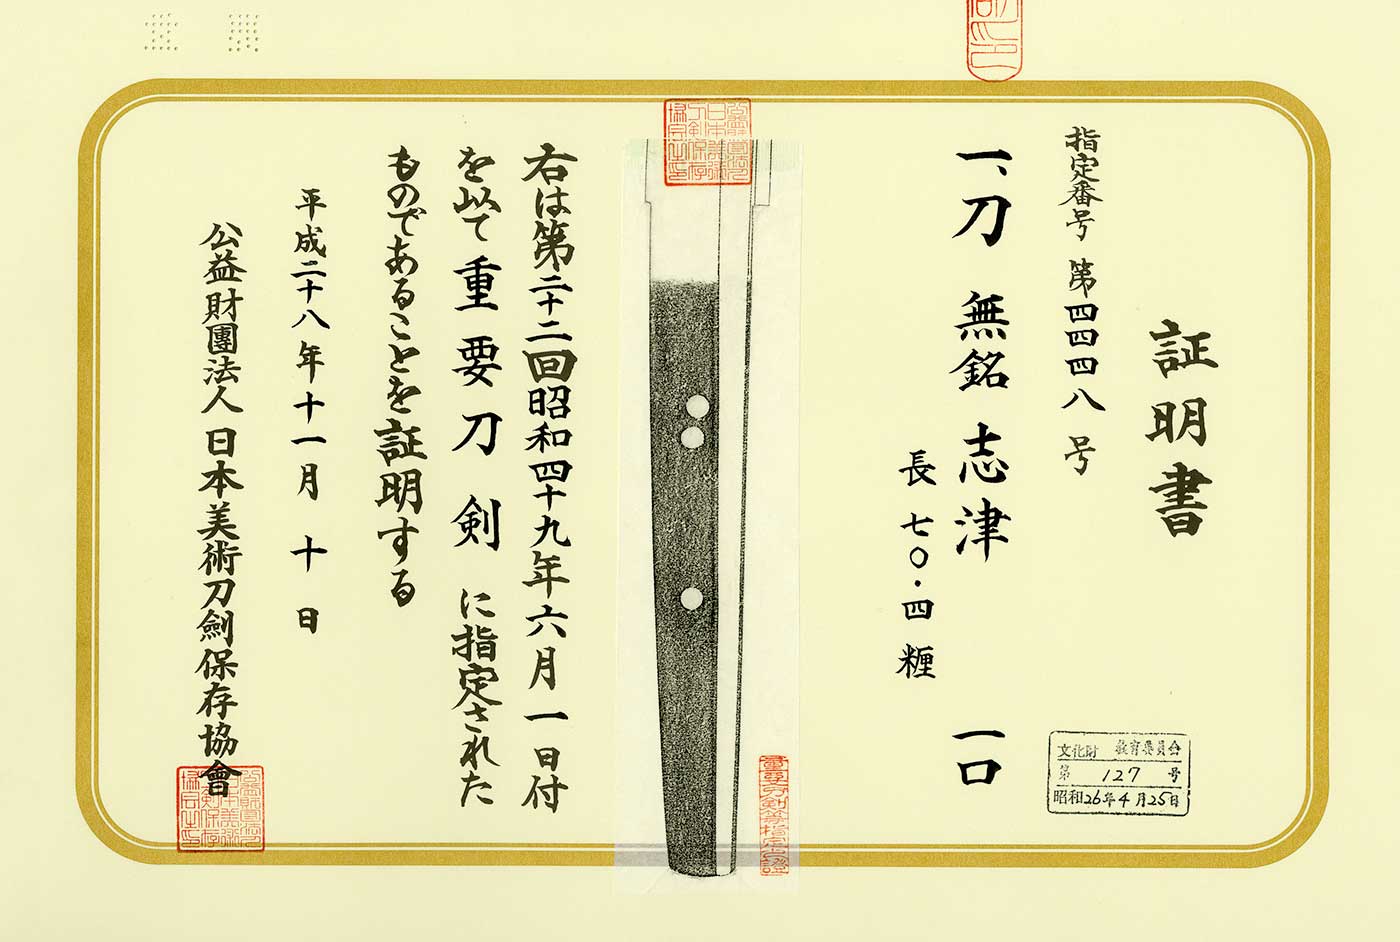 証明書
指定番号 第四四四八号
一、刀 無銘 志津 一口
長 七〇・四糎
右は第二十二回昭和四十九年六月一日付
を以て重要刀剣に指定された
ものであることを証明する
平成二十八年十一月十日
公益財團法人日本美術刀劍保存協會
文化財 教育委員会
第 127 号
昭和26年4月25日
重要刀剣等指定之證